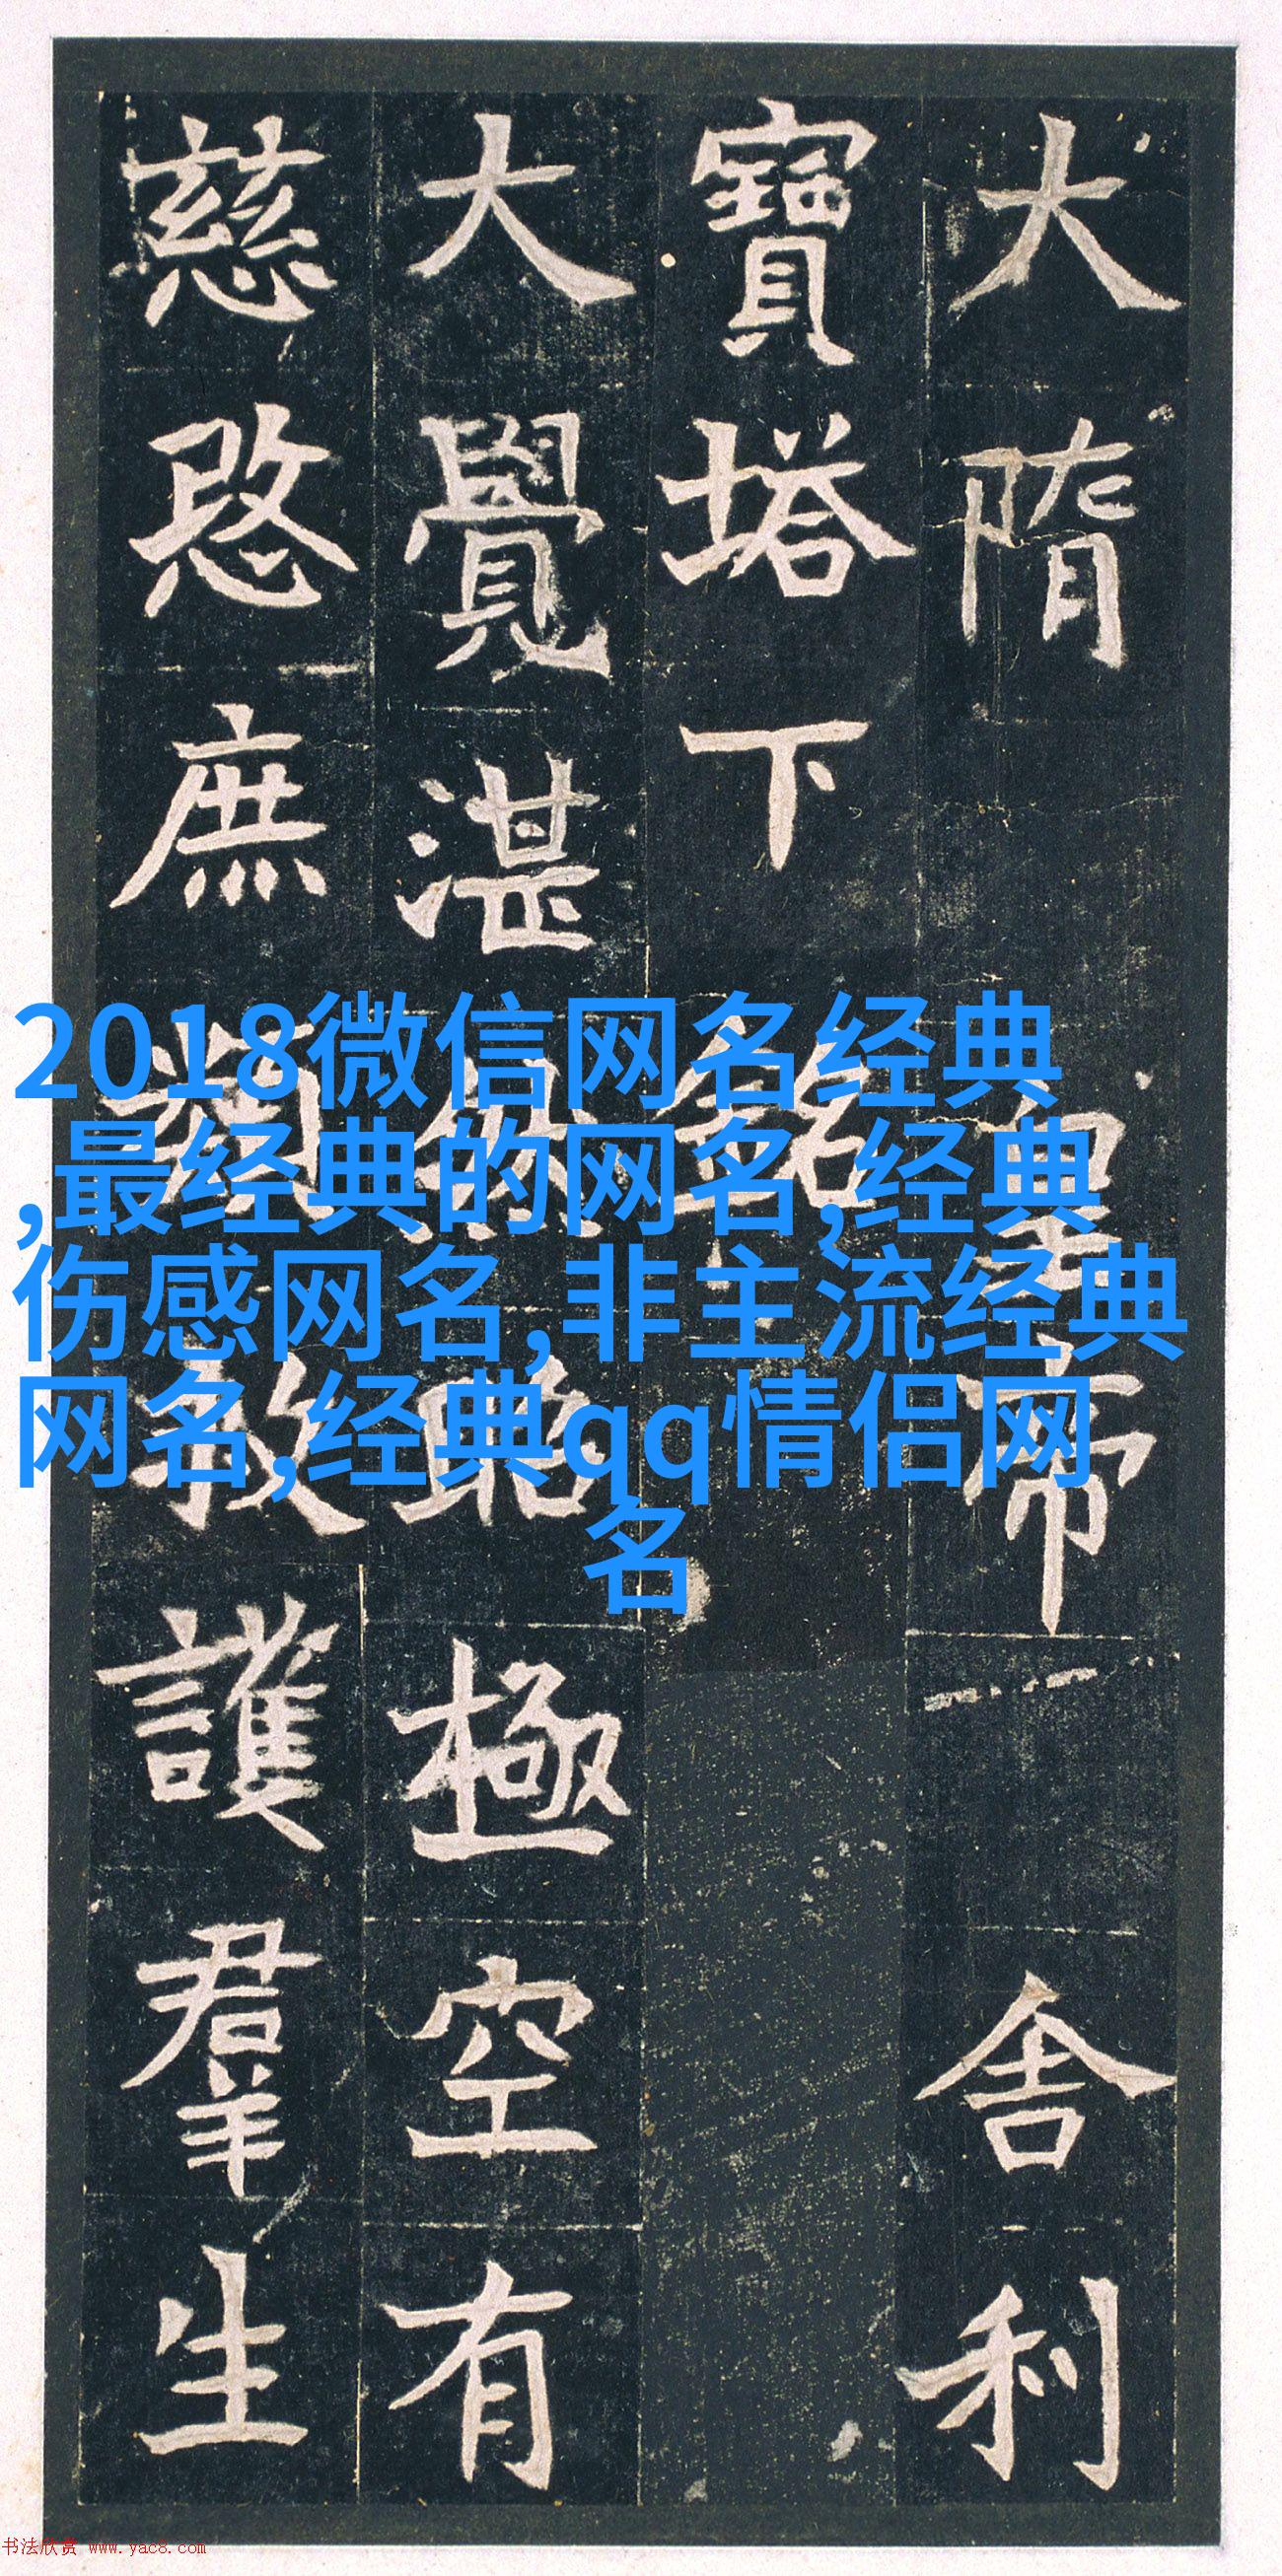 大隋皇帝舍利
寶塔下銘
大覺湛然昭極空有
慈愍庶類救護羣生
2018微信网名经典
,最经典的网名,经典
伤感网名,非主流经典
网名,经典qq情侣网
名
书法欣赏 www.yac8.com